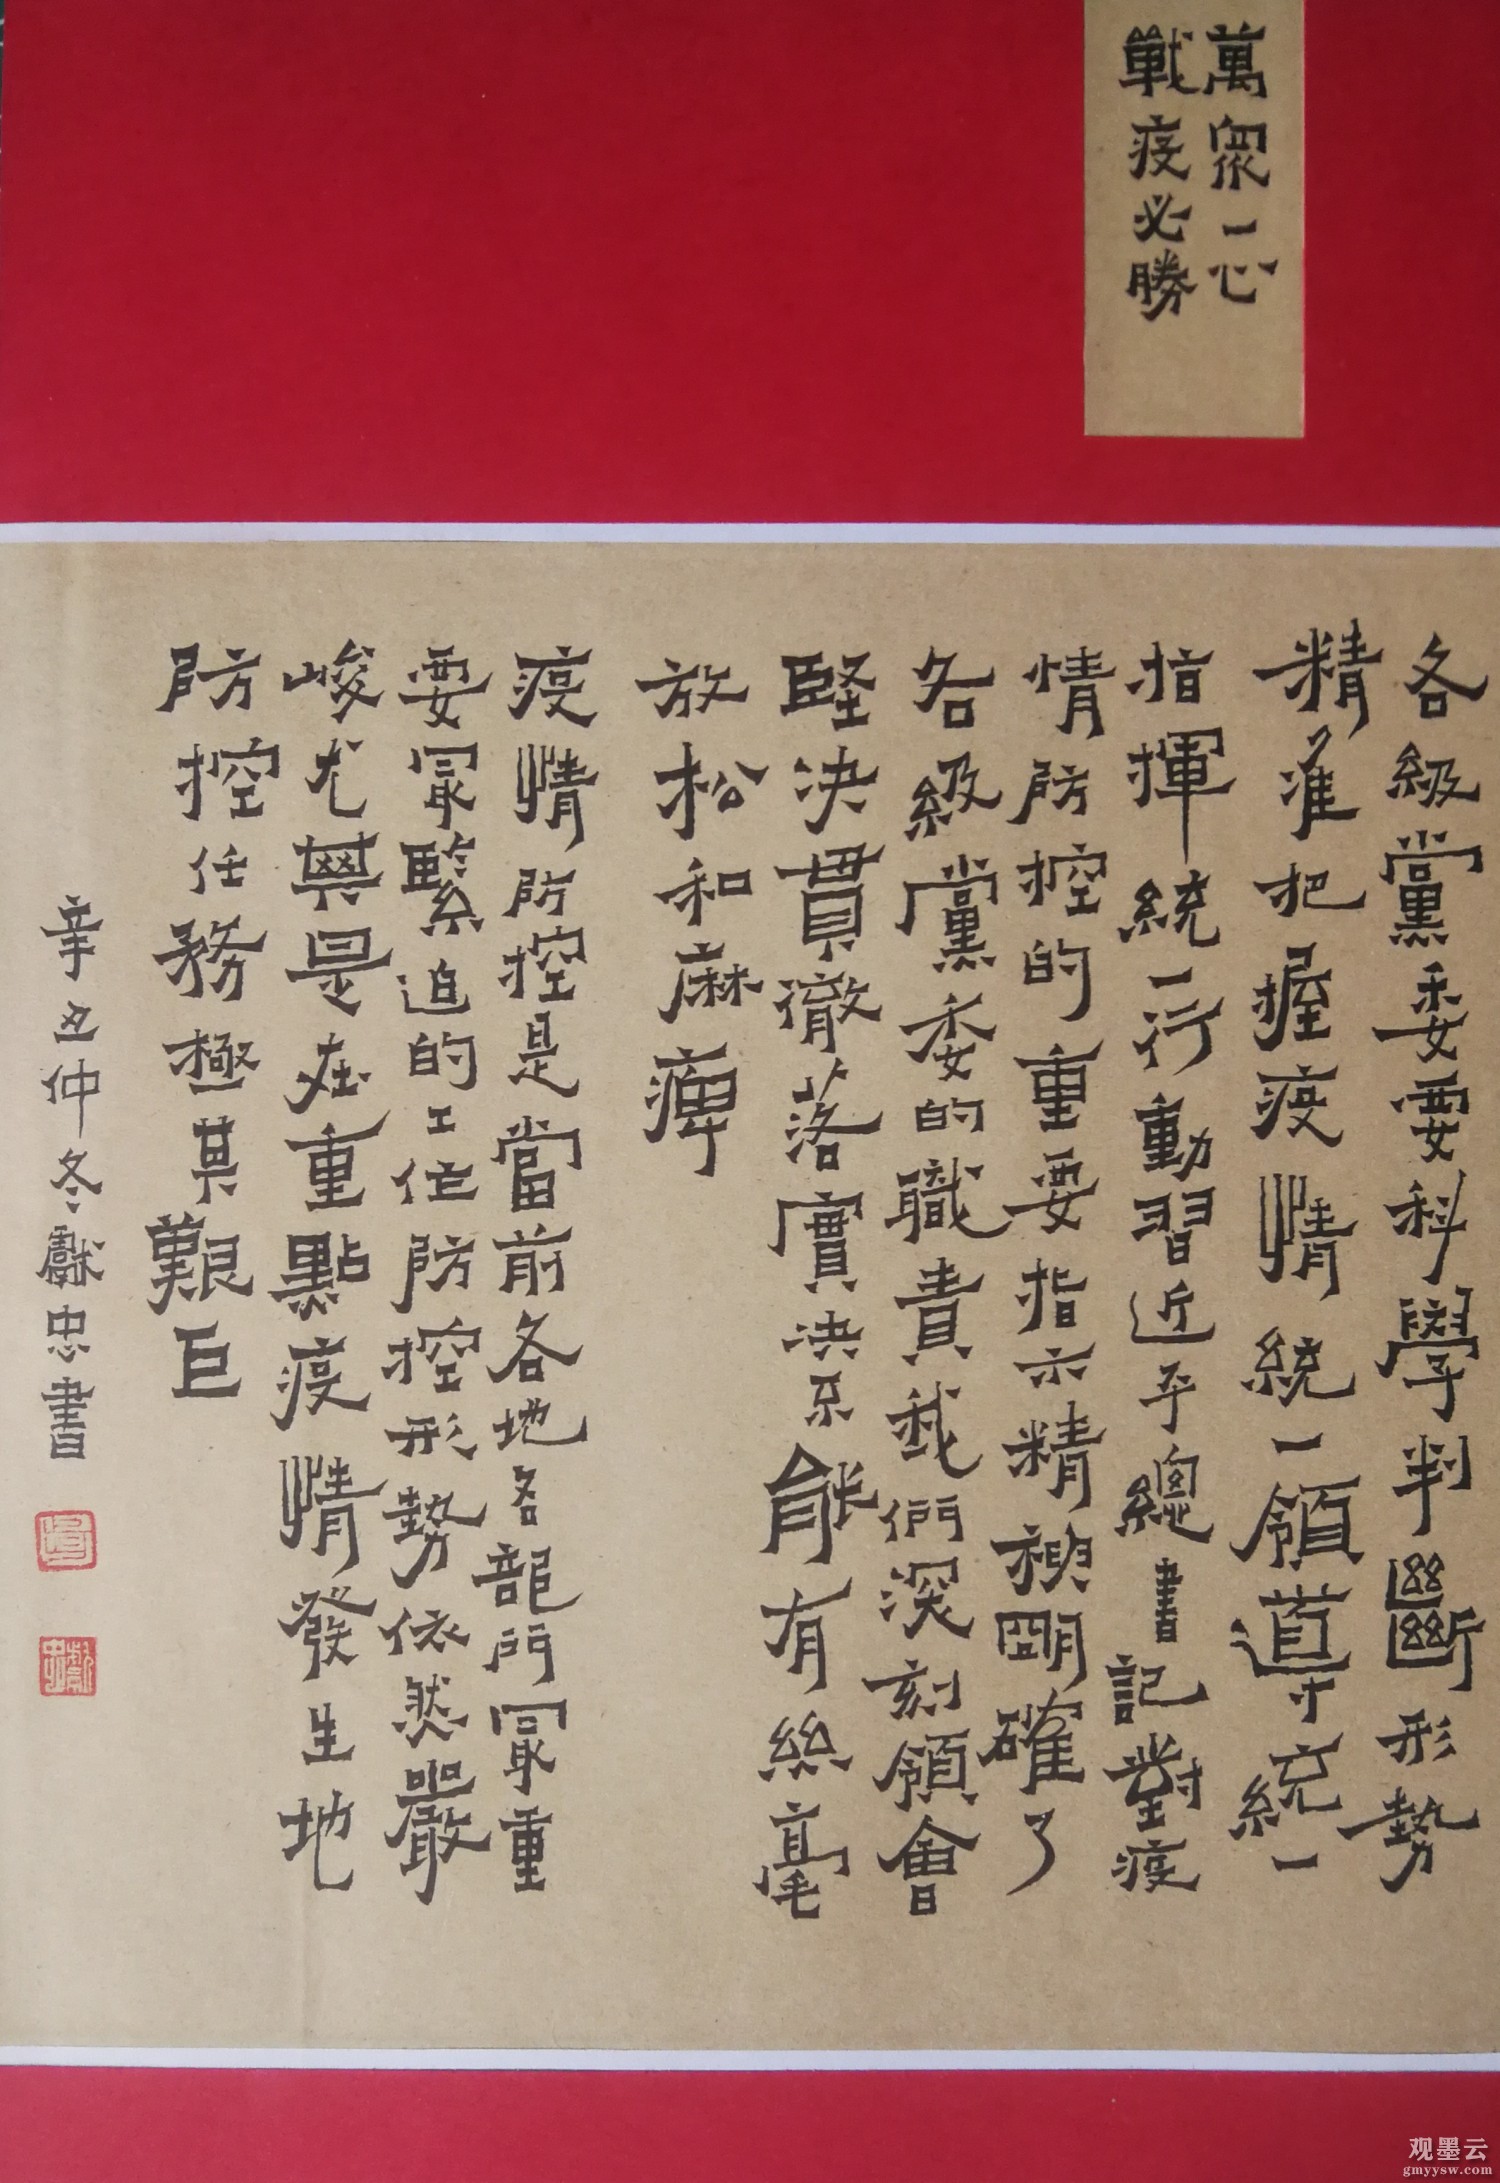 萬眾一心
戰疫必勝
各級黨委要科學判斷形勢
精準把握疫情統一領導統一
指揮統一行動習近平總書記對疫
情防控的重要指示精神明確了
各級黨委的職責我們深刻領會
堅決貫徹落實決不能有絲毫
放松和麻痺
疫情防控是當前各地各部門最重
要最緊迫的工作防控形勢依然嚴
峻尤其是在重點疫情發生地
防控任務極其艱巨
辛丑仲冬獻忠書
观墨云
gmyysw.com